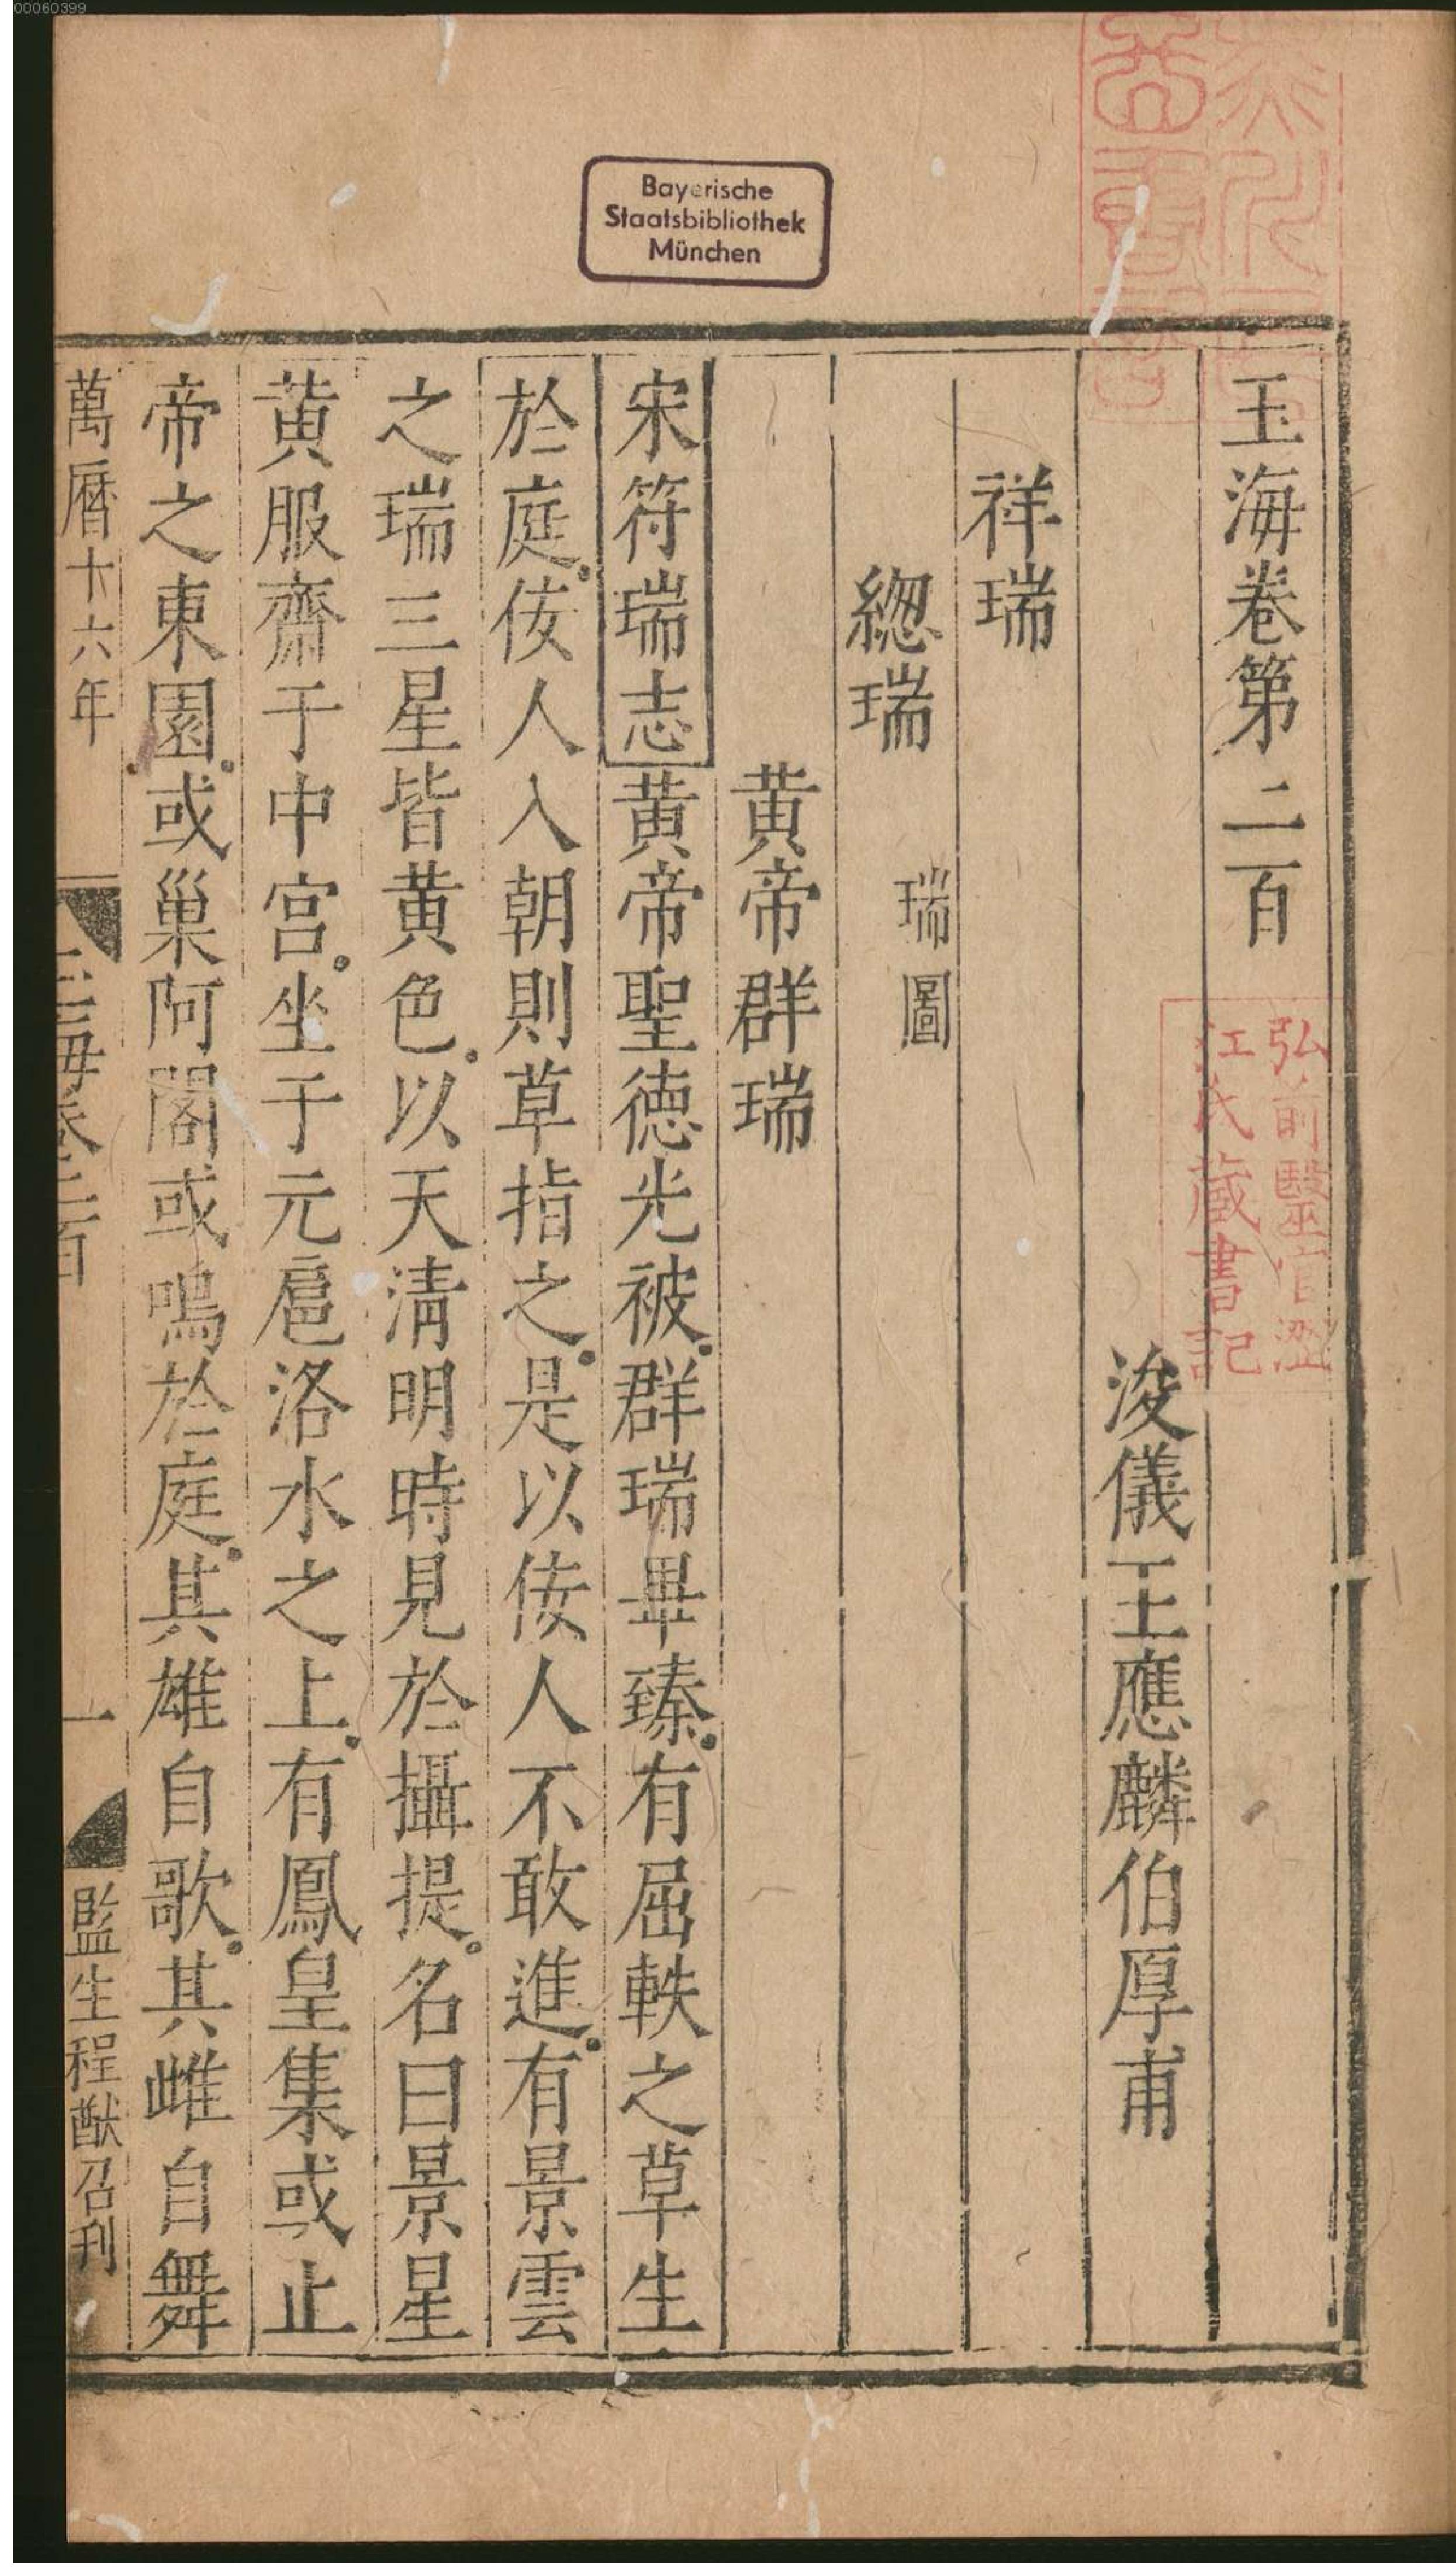 00060399
Bayerische
Staatsbibliothek
München
玉海卷第二百
弘前醫官澀
江氏藏書記
浚儀王應麟伯厚甫
祥瑞
緫瑞 瑞圖
黄帝群瑞
宋符瑞志黄帝聖德光被群瑞畢臻有屈軼之草生
於庭佞人入朝則草指之是以佞人不敢進有景雲
之瑞三星皆黄色以天清明時見於攝提名曰景星
黄服齋于中宫坐于元扈洛水之上有鳳皇集或止
帝之東園或巢阿閣或鳴於庭其雄自歌其雌自舞
萬曆十六年 玉海卷二百 一 監生程猷召刊